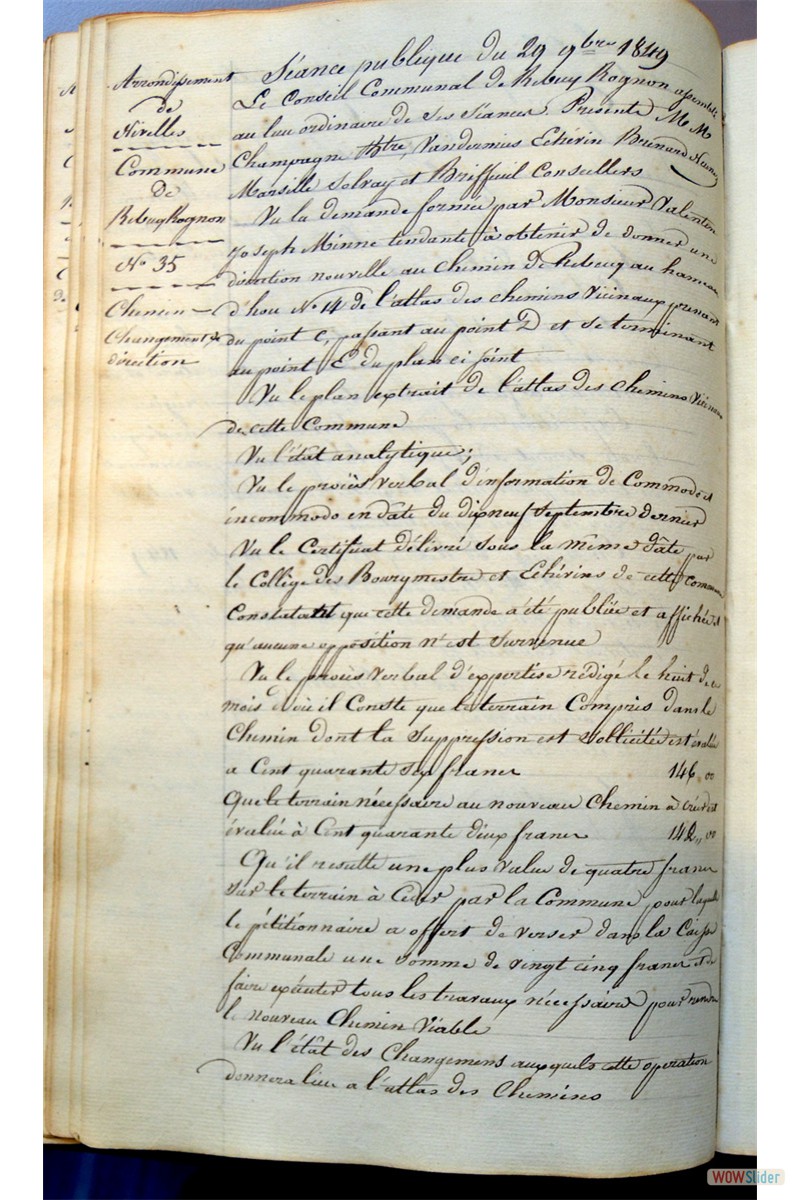 Arrondissement
de
Nivelles
Commune
De
Rebecq Rognon
No 35
Chemin
Changement de
direction
Séance publique du 29 9bre 1849
Le Conseil Communal de Rebecq Rognon assemblé
au lieu ordinaire de ses séances. Présents M M
Champagne Bgtre, Vandernius Echévin Brénard
Marsille Solvay et Briffeuil Conseillers
Vu la demande formée par Monsieur Valentin
Joseph Minne tendante à obtenir de donner une
direction nouvelle au chemin de Rebecq au hameau
d'hou No 14 de l'atlas des chemins Vicinaux prenant
du point C, passant au point D et se terminant
au point E du plan ci joint
Vu le plan extrait de l'atlas des chemins Vicinaux
de cette Commune
Vu l'état analytique;
Vu le procès verbal d'information de Commodo et
incommodo en date du dixneuf Septembre dernier
Vu le Certificat délivré sous la même date par
le Collège des Bourgmestre et Echévins de cette commune
Constatant que cette demande a été publiée et affichée et
qu'aucune opposition n'est survenue
Vu le procès verbal d'expertise rédigé le huit de ce
mois d'où il Conste que le terrain Compris dans le
Chemin dont la suppression est sollicitée est évalué
a Cent quarante six francs 146,00
Que le terrain nécessaire au nouveau Chemin à créer est
évalué à Cent quarante deux francs 142,,00
Qu'il resulte une plus value de quatre francs
sur le terrain à Céder par la Commune pour laquelle
le pétitionnaire a offert de verser dans la Caisse
Communale une somme de vingt cinq francs et de
faire exécuter tous les travaux nécessaires pour rendre
le nouveau Chemin Viable
Vu l'état des Changemens auxquels cette operation
donnera lieu a l'atlas des Chemins
WOWSlider